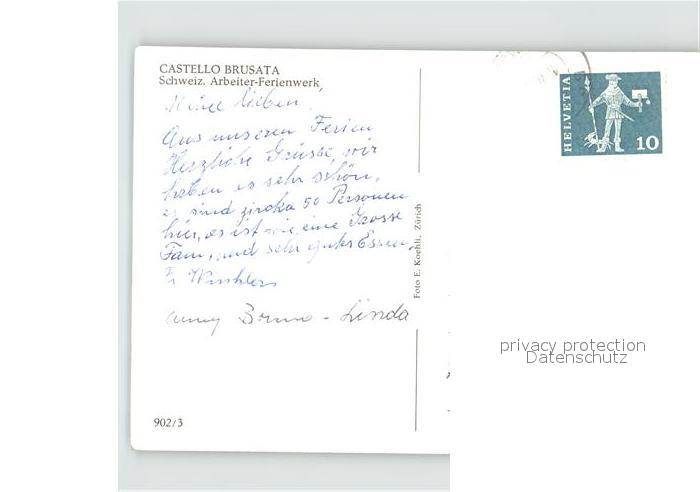 CASTELLO BRUSATA
Schweiz. Arbeiter-Ferienwerk
lieben!
Aus unseren Ferien
Herzliche Grüsse, wir
haben es sehr schön,
es sind zircka 50 Personen
hier, es ist wie eine Grosse
Fam, und sehr gutes Essen
Bruno - Linda
902/3
Foto E. Koehli, Zürich
HELVETIA
10
privacy protection
Datenschutz